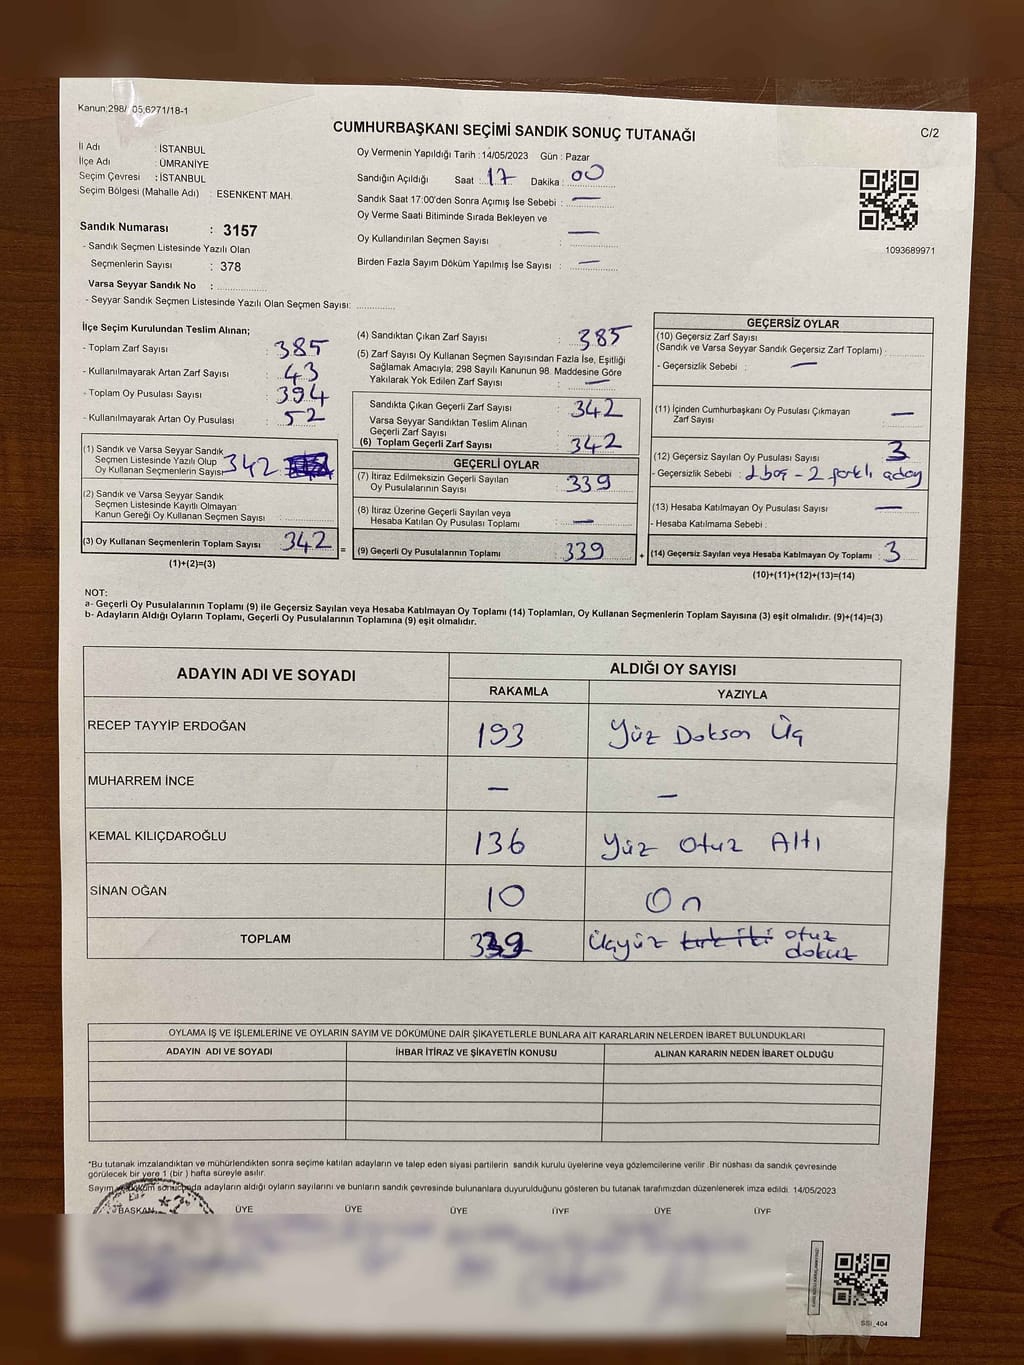 Kanun;298/ 05;6271/18-1
CUMHURBAŞKANI SEÇİMİ SANDIK SONUÇ TUTANAĞI
C/2
İl Adı : İSTANBUL
İlçe Adı : ÜMRANİYE
Seçim Çevresi : İSTANBUL
Seçim Bölgesi (Mahalle Adı) : ESENKENT MAH.
Oy Vermenin Yapıldığı Tarih : 14/05/2023 Gün : Pazar
Sandığın Açıldığı Saat : 17 Dakika : 00
Sandık Saat 17:00'den Sonra Açımış İse Sebebi : —
Oy Verme Saati Bitiminde Sırada Bekleyen ve
Oy Kullandırılan Seçmen Sayısı : —
Birden Fazla Sayım Döküm Yapılmış İse Sayısı : —
1093689971
Sandık Numarası : 3157
- Sandık Seçmen Listesinde Yazılı Olan
Seçmenlerin Sayısı : 378
Varsa Seyyar Sandık No :
- Seyyar Sandık Seçmen Listesinde Yazılı Olan Seçmen Sayısı:
İlçe Seçim Kurulundan Teslim Alınan;
- Toplam Zarf Sayısı : 385
- Kullanılmayarak Artan Zarf Sayısı : 43
- Toplam Oy Pusulası Sayısı : 394
- Kullanılmayarak Artan Oy Pusulası : 52
(1) Sandık ve Varsa Seyyar Sandık
Seçmen Listesinde Yazılı Olup
Oy Kullanan Seçmenlerin Sayısı : 342
(2) Sandık ve Varsa Seyyar Sandık
Seçmen Listesinde Kayıtlı Olmayan
Kanun Gereği Oy Kullanan Seçmen Sayısı :
(3) Oy Kullanan Seçmenlerin Toplam Sayısı : 342
(1)+(2)=(3)
=
(4) Sandıktan Çıkan Zarf Sayısı : 385
(5) Zarf Sayısı Oy Kullanan Seçmen Sayısından Fazla İse, Eşitliği
Sağlamak Amacıyla; 298 Sayılı Kanunun 98. Maddesine Göre
Yakılarak Yok Edilen Zarf Sayısı : —
Sandıkta Çıkan Geçerli Zarf Sayısı : 342
Varsa Seyyar Sandıktan Teslim Alınan
Geçerli Zarf Sayısı :
(6) Toplam Geçerli Zarf Sayısı : 342
GEÇERLİ OYLAR
(7) İtiraz Edilmeksizin Geçerli Sayılan
Oy Pusulalarının Sayısı : 339
(8) İtiraz Üzerine Geçerli Sayılan veya
Hesaba Katılan Oy Pusulası Toplamı : —
(9) Geçerli Oy Pusulalarının Toplamı : 339
+
GEÇERSİZ OYLAR
(10) Geçersiz Zarf Sayısı
(Sandık ve Varsa Seyyar Sandık Geçersiz Zarf Toplamı) :
- Geçersizlik Sebebi : —
(11) İçinden Cumhurbaşkanı Oy Pusulası Çıkmayan
Zarf Sayısı : —
(12) Geçersiz Sayılan Oy Pusulası Sayısı : 3
- Geçersizlik Sebebi : 1 boş - 2 farklı aday
(13) Hesaba Katılmayan Oy Pusulası Sayısı : —
- Hesaba Katılmama Sebebi :
(14) Geçersiz Sayılan veya Hesaba Katılmayan Oy Toplamı : 3
(10)+(11)+(12)+(13)=(14)
NOT:
a- Geçerli Oy Pusulalarının Toplamı (9) ile Geçersiz Sayılan veya Hesaba Katılmayan Oy Toplamı (14) Toplamları, Oy Kullanan Seçmenlerin Toplam Sayısına (3) eşit olmalıdır. (9)+(14)=(3)
b- Adayların Aldığı Oyların Toplamı, Geçerli Oy Pusulalarının Toplamına (9) eşit olmalıdır.
ADAYIN ADI VE SOYADI
ALDIĞI OY SAYISI
RAKAMLA YAZIYLA
RECEP TAYYİP ERDOĞAN 193 Yüz Doksan Üç
MUHARREM İNCE — —
KEMAL KILIÇDAROĞLU 136 Yüz Otuz Altı
SİNAN OĞAN 10 On
TOPLAM 339 Üçyüz kırk iki otuz
dokuz
OYLAMA İŞ VE İŞLEMLERİNE VE OYLARIN SAYIM VE DÖKÜMÜNE DAİR ŞİKAYETLERLE BUNLARA AİT KARARLARIN NELERDEN İBARET BULUNDUKLARI
ADAYIN ADI VE SOYADI İHBAR İTİRAZ VE ŞİKAYETİN KONUSU ALINAN KARARIN NEDEN İBARET OLDUĞU
*Bu tutanak imzalandıktan ve mühürlendikten sonra seçime katılan adayların ve talep eden siyasi partilerin sandık kurulu üyelerine veya gözlemcilerine verilir .Bir nüshası da sandık çevresinde
görülecek bir yere 1 (bir ) hafta süreyle asılır.
Sayım ve döküm sonucunda adayların aldığı oyların sayılarını ve bunların sandık çevresinde bulunanlara duyurulduğunu gösteren bu tutanak tarafımızdan düzenlenerek imza edildi. 14/05/2023
BAŞKAN ÜYE ÜYE ÜYE ÜYE ÜYE ÜYE
SSI_404